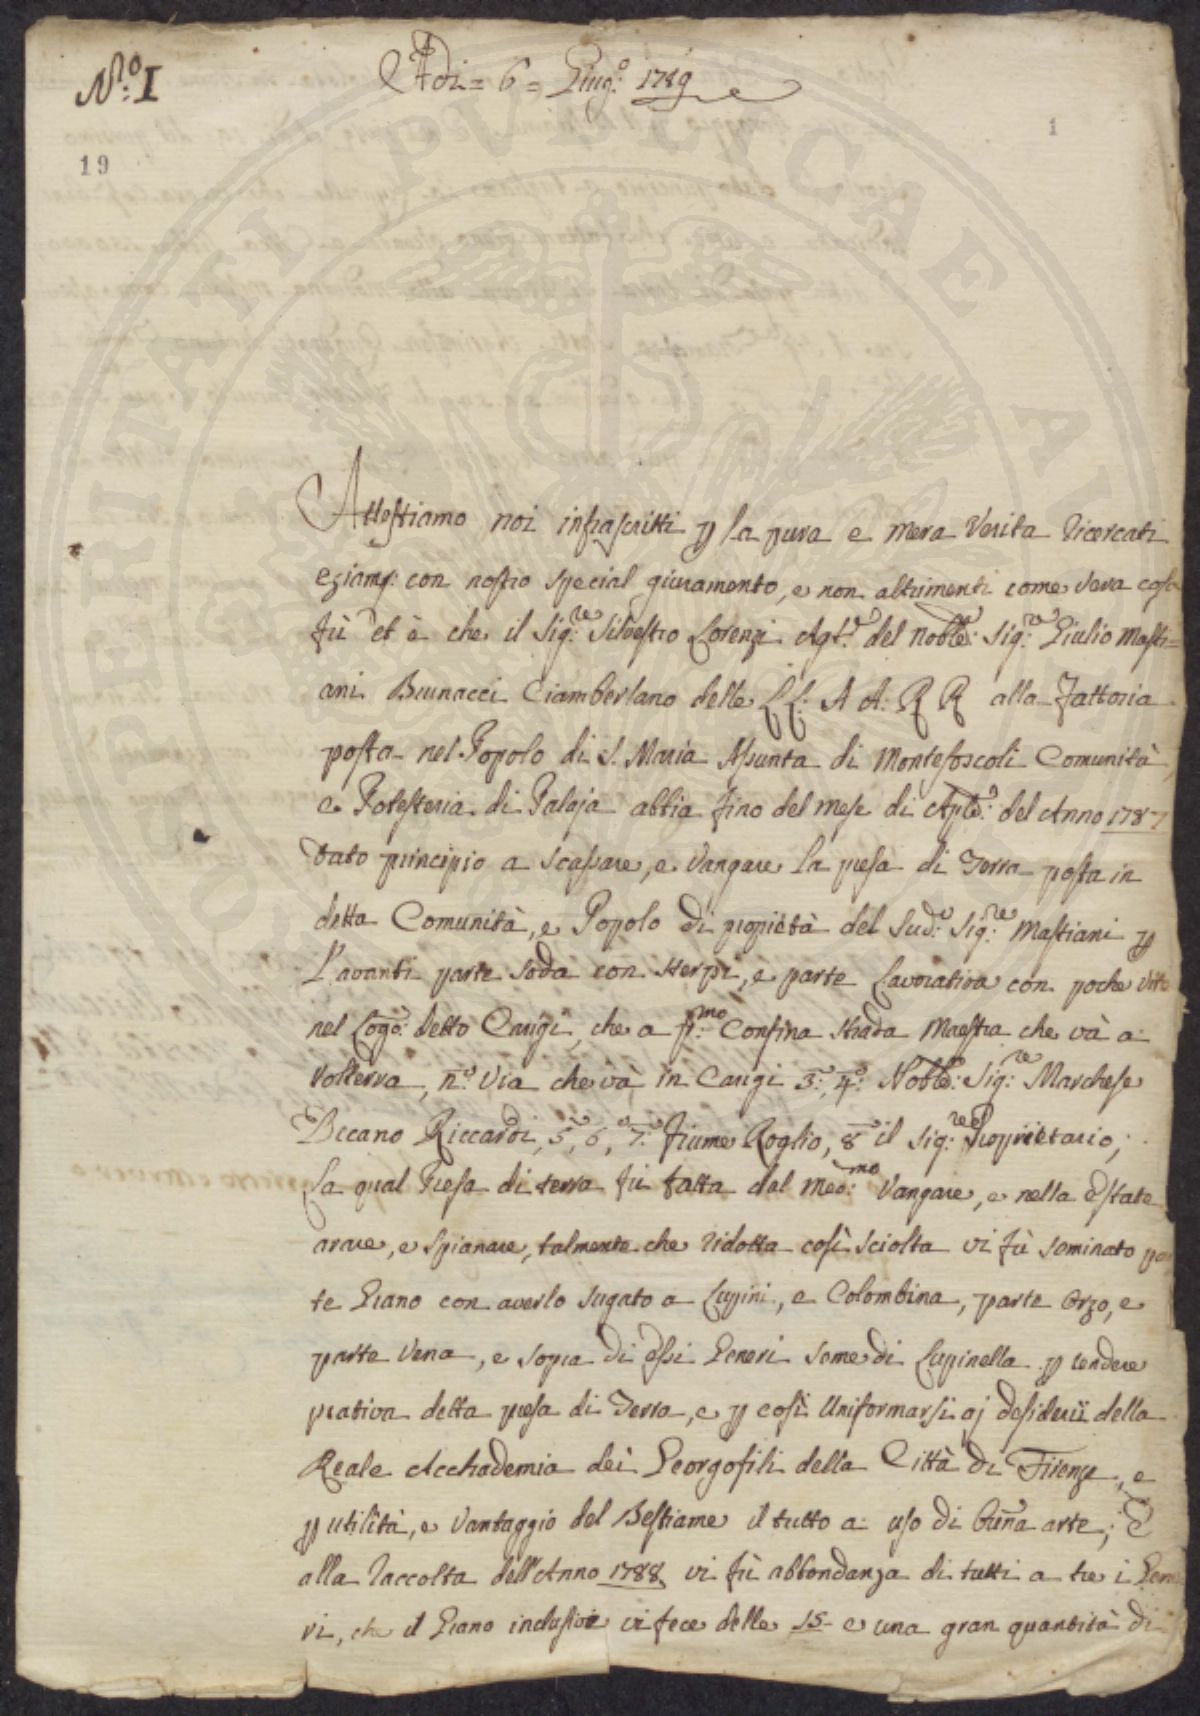 N.º I
Adi = 6 = Giug.º 1789
19
1
PROSPERITATI PUBLICAE AU
Attestiamo noi infrascritti p la pura e mera Verita ricercati
eziam: con nostro special giuramento, e non altrimenti come vera cosa
fù et è che il Sig:re Silvestro Lorenzi Agt.e del Noble: Sig:re Giulio Masti=
ani Brunacci Ciamberlano delle LL: A A: R R alla Fattoria
posta nel Popolo di S. Maria Assunta di Montefoscoli Comunità,
e Potesteria di Palaja abbia fino del mese di Aple: del Anno 1787
dato principio a scassare, e Vangare la presa di Terra posta in
detta Comunità, e Popolo di propietà del Sud:o Sig:re Mastiani p
l'avanti parte soda con sterpi, e parte Lavorativa con poche Vite
nel Logo: detto Carigi, che a p:mo Confina strada Maestra che và a
Volterra, n:o Via che và in Carigi 3:o, 4:o Noble: Sig:re Marchese
Decano Riccardi, 5:o, 6:o, 7:o fiume Roglio, 8:o il Sig:re Proprietario;
La qual Presa di terra fù fatta dal med:mo Vangare, e nella Estate
arare, e spianare, talmente che ridotta così sciolta vi fù seminato par
te Grano con averlo sugato a Lupini, e Colombina, parte Orzo, e
parte Vena, e sopra di essi Generi seme di Lupinella p rendere
prativa detta presa di Terra, e p così Uniformarsi aj desiderii della
Reale Acchademia dei Georgofili della Città di Firenze, e
p utilità, e Vantaggio del Bestiame il tutto a uso di buña arte; E
alla raccolta dell'Anno 1788 vi fù abbondanza di tutti a tre i Gene
ri, che il Grano inclusive vi fece delle 15 e una gran quantità di